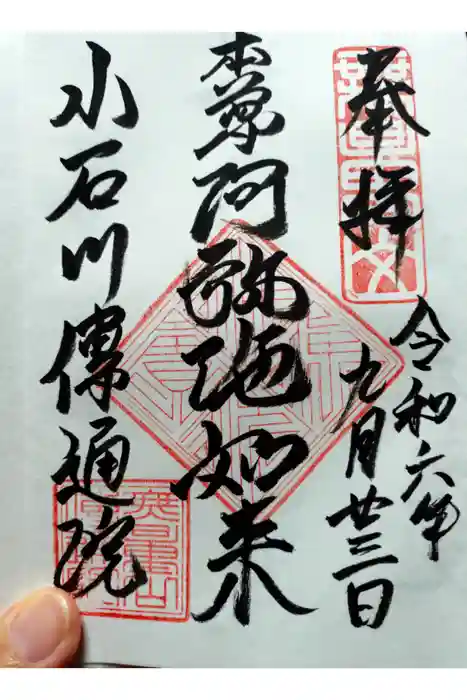 奉拝
令和六年
九月廿三日
本尊
阿弥陀如来
小石川傳通院